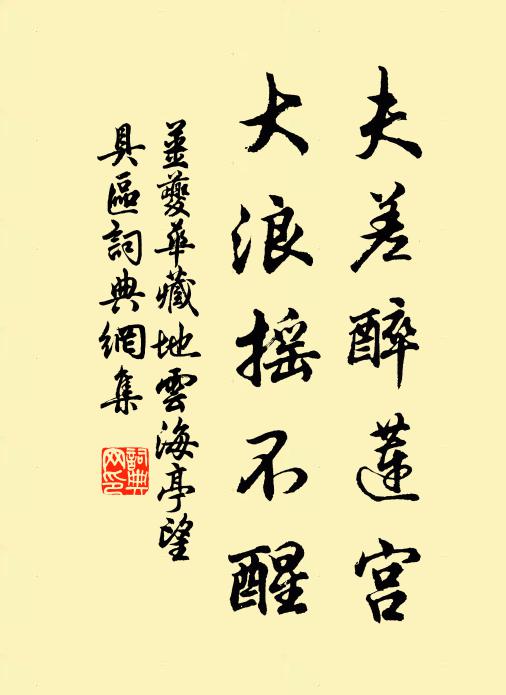 夫差醉蓮宮
大浪摇不醒
姜夔華藏地雲海亭望
具區詞典網集
詞典网印